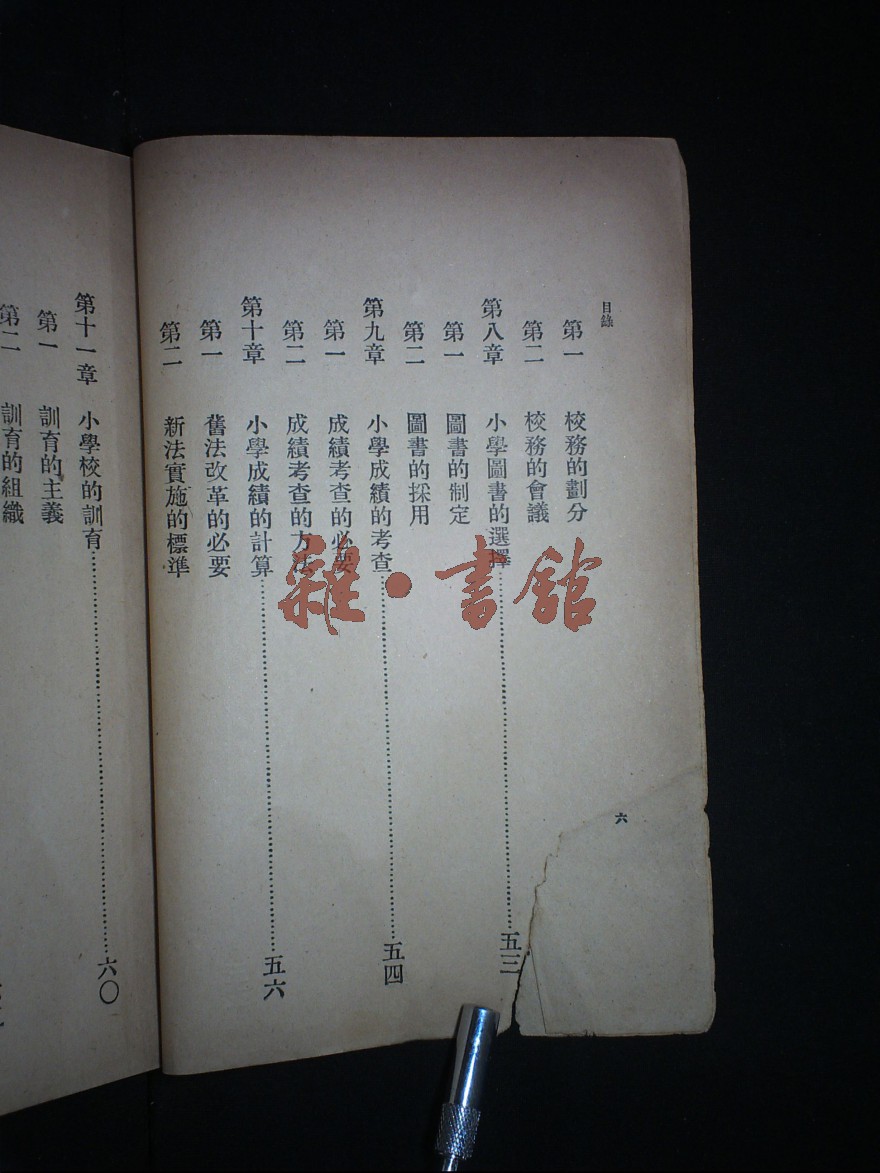 目錄
六
第一 校務的劃分
第二 校務的會議
第八章 小學圖書的選擇……五三
第一 圖書的制定
第二 圖書的採用
第九章 小學成績的考查……五四
第一 成績考查的必要
第二 成績考查的方法
第十章 小學成績的計算……五六
第一 舊法改革的必要
第二 新法實施的標準
第十一章 小學校的訓育……六〇
第一 訓育的主義
第二 訓育的組織
雜·書館